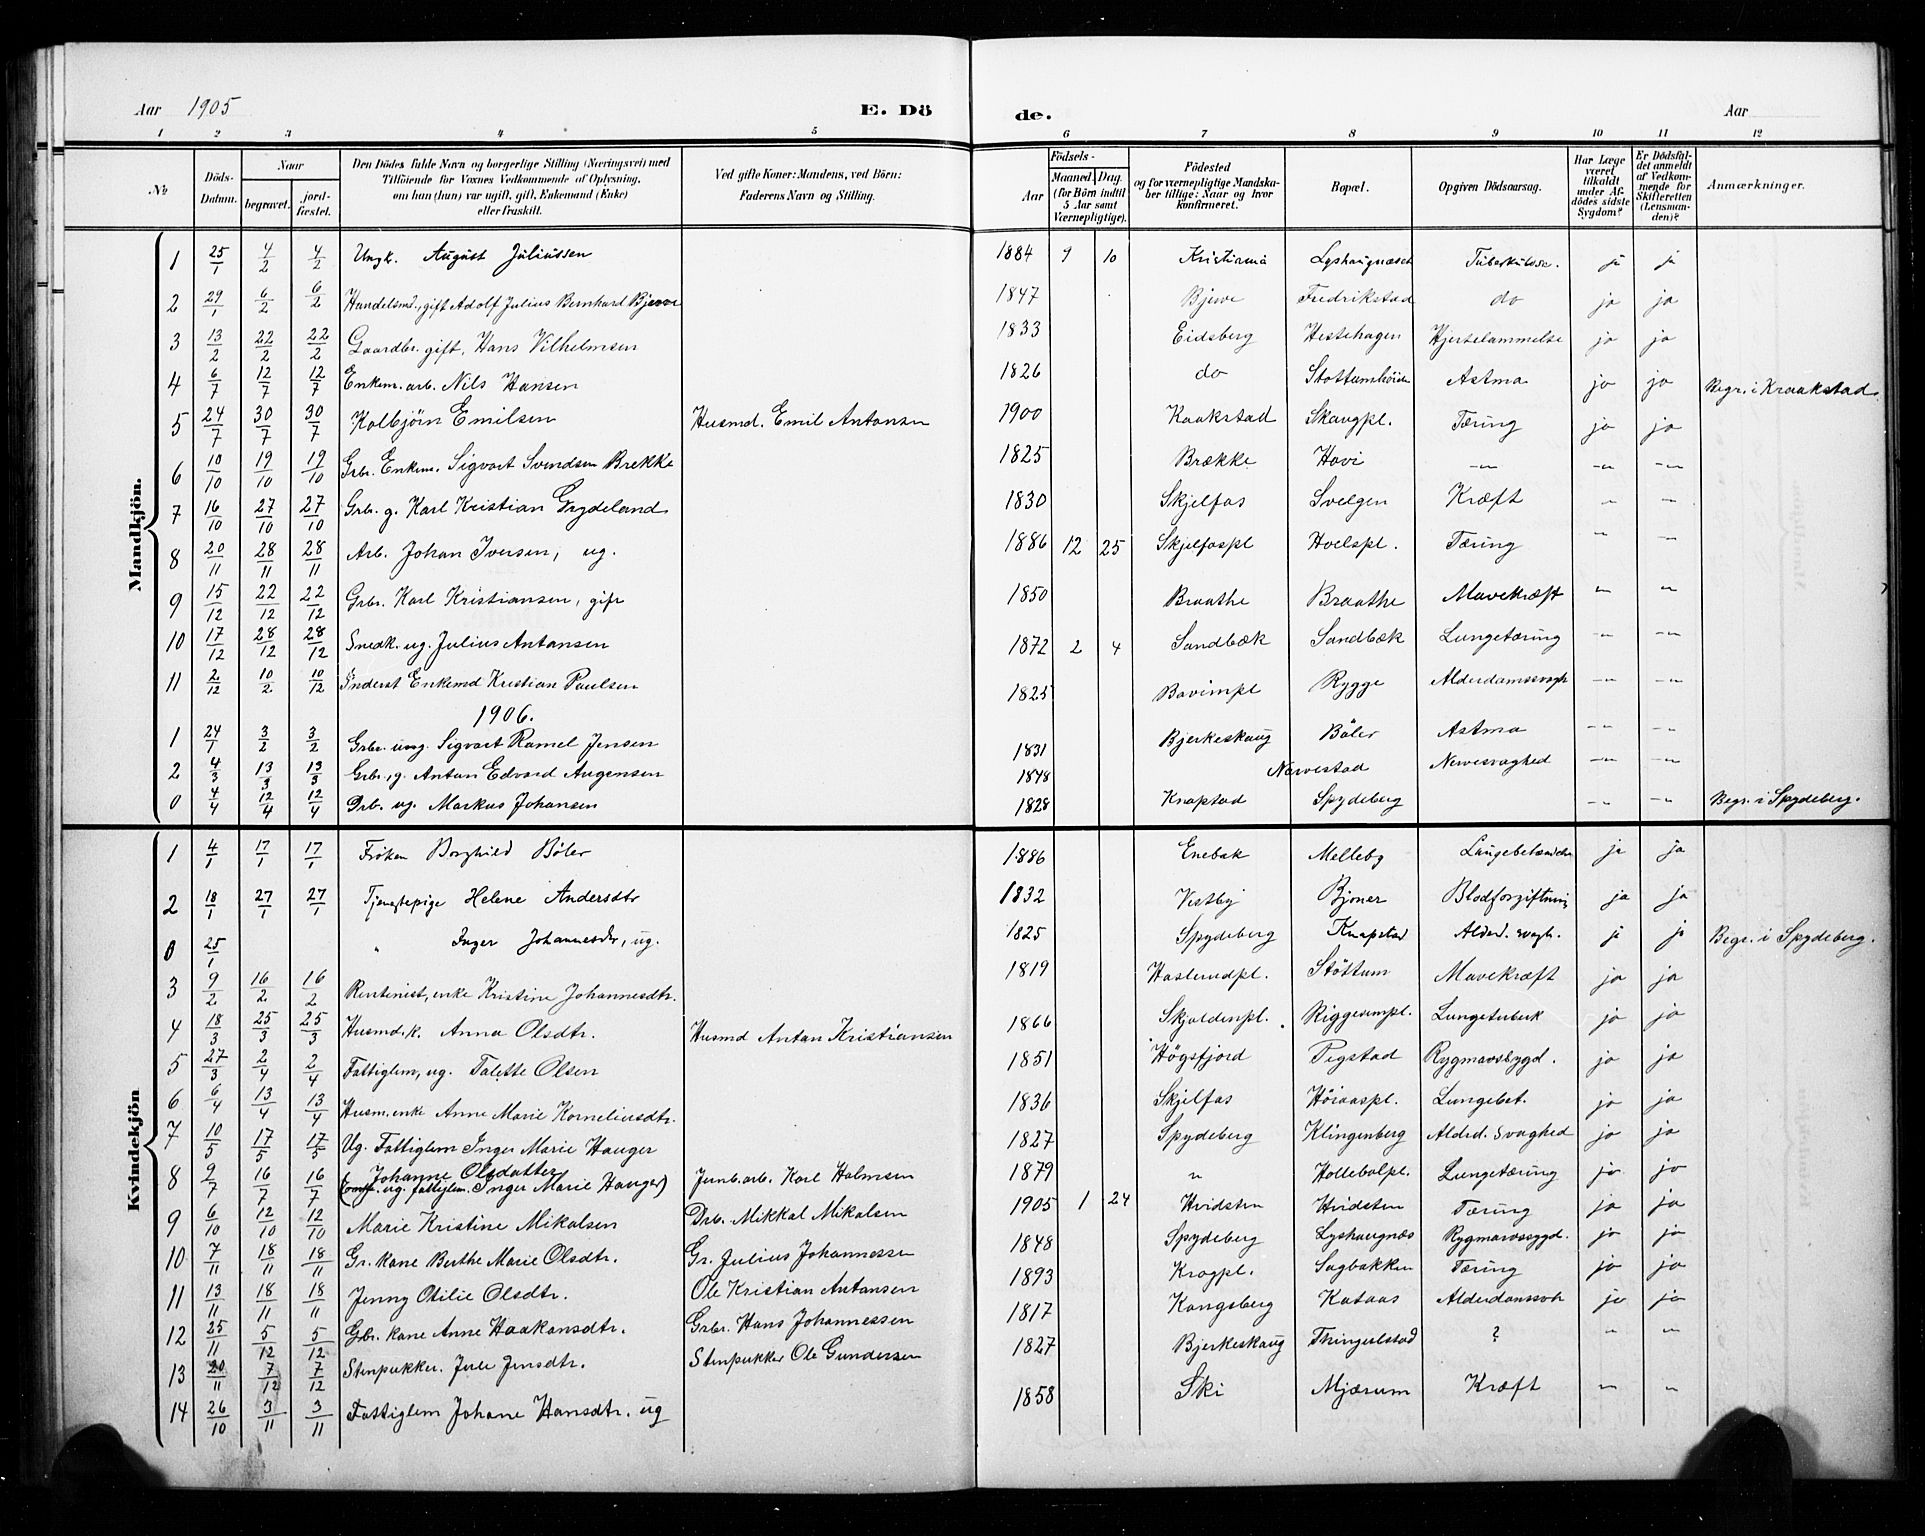 Aar 1905 E. Dö de. Aar
1 2 3 4 5 6 7 8 9 10 11 12
No
Döds-Datum.
Naar begravet. jordfæstet.
Den Dödes fulde Navn og borgerlige Stilling (Næringsvei) med Tilföiende for Voxnes Vedkommende af Oplysning, om han (hun) var ugift, gift, Enkemand (Enke) eller fraskilt.
Ved gifte Koner: Mandens, ved Börn: Faderens Navn og Stilling.
Födsels- Aar Maaned. Dag. (for Börn indtil 5 Aar samt Værnepligtige).
Födested og for værnepligtige Mandskaber tillige: Naar og hvor konfirmeret.
Bopæl.
Opgiven Dödsaarsag.
Har Læge været tilkaldt under Afdödes sidste Sygdom?
Er Dödsfaldet anmeldt af Vedkommende for Skifteretten (Lensmanden)?
Anmærkninger.
Mandkjön.
1 25/1 4/2 4/2 Ungk. August Juliussen 1884 9 10 Kristiania Tuberkulose. ja ja
2 29/1 6/2 6/2 Handelsmd., gift Adolf Julius Bernhard Bjerve 1847 Bjerve Fredrikstad do ja ja
3 13/2 22/2 22/2 Gaardbr. gift, Hans Vilhelmsen 1833 Eidsberg Hestehagen Hjertelammelse ja ja
4 6/7 12/7 12/7 Enkem. arb. Nils Hansen 1826 do Astma ja ja Begr. i Kraakstad.
5 24/7 30/7 30/7 Kolbjörn Emilsen Husmd. Emil Antonsen 1900 Kaakstad Skaugpl. Tæring ja ja
6 10/10 19/10 19/10 Grbr. Enkem. Sigvart Svendsen Brekke 1825 Brække Hovi -"- -"- -"-
7 16/10 27/10 27/10 Grbr. g. Karl Kristian Grydeland 1830 Skjelfos Svelgen Kræft -"- -"-
8 20/11 28/11 28/11 Arb. Johan Iversen, ug. 1886 12 25 Skjelfospl Hoelspl. Tæring -"- -"-
9 15/12 22/12 22/12 Grbr. Karl Kristiansen, gift 1850 Braathe Braathe Mavekræft -"- -"-
10 17/12 28/12 28/12 Snedk. ug. Julius Antonsen 1872 2 4 Sandbæk Sandbæk Lungetæring -"- -"-
11 2/12 10/2 10/12 Inderst Enkemd Kristian Paulsen 1825 Bovimpl Rygge Alderdomssvagh -"- -"-
1906.
1 24/1 3/2 3/2 Grbr. ung. Sigvart Ramel Jensen 1831 Bjerkeskaug Böler Astma -"- -"-
2 4/3 13/3 13/3 Grbr. g. Anton Edvard Augensen 1848 Narvestad Nervesvaghed -"- -"-
0 4/4 12/4 12/4 Grb. ug. Markus Johansen 1828 Knapstad Spydeberg -"- -"- Begr. i Spydeberg.
Kvindekjön
1 4/1 17/1 17/1 Fröken Borghild Böler 1886 Enebak Melleby ja ja
2 18/1 27/1 27/1 Tjenestepige Helene Andersdtr 1832 Vestby Bjoner Blodforgiftning ja ja
0 25/1 " Inger Johannesdr, ug. 1825 Spydeberg Knapstad Alderd. svagh. ja ja Begr. i Spydeberg.
3 9/2 16/2 16/2 Rentenist, enke Kristine Johannesdtr. 1819 Haslerudpl. Stöttum Mavekræft ja ja
4 18/3 25/3 25/3 Husmd. k. Anna Olsdtr. Husmd Anton Kristiansen 1866 Skjoldenpl. Riggesimpl. Lungetuberk ja ja
5 27/3 2/4 2/4 Fattiglem, ug. Talette Olsen 1851 Högsfjord Pegstad Rygmavsbygd. ja ja
6 6/4 13/4 13/4 Husm. enke Anne Marie Korneliusdtr. 1836 Skjelfos Höiaaspl. Lungebet. ja ja
7 10/5 17/5 17/5 Ug. Fattiglem Inger Marie Hauger 1827 Spydeberg Klingenberg Aldrd. svaghed ja ja
8 9/7 16/7 16/7 Johanne Olsdatter ( ug. fattiglem. Inger Marie Hauger) Jernb. arb. Karl Holmsen 1879 " Hollebolpl. Lungetæring ja ja
9 6/10 12/10 12/10 Marie Kristine Mikalsen Mikkal Mikalsen 1905 1 24 Hvidsten Hvidsten Tæring ja ja
10 7/11 18/11 18/11 Gr. kone Berthe Marie Olsdtr. Gr. Julius Johannessen 1848 Spydeberg Lyshaugnæs Rygmarvssygd. ja ja
11 13/11 18/11 18/11 Jenny Otilie Olsdtr. Ole Kristian Antonsen 1893 Krogpl. Sagbakken Tæring ja ja
12 25/11 5/12 5/12 Grbr. kone Anne Haakonsdtr. Grbr. Hans Johannessen 1817 Kongsberg Kataas Alderdomssvh ja ja
13 20/11 7/12 7/12 Stenpukker. Jensdtr. Stenpukker Ole Gundersen 1827 Bjerkeskaug ? " "
14 26/10 3/11 3/11 Fattiglem Johane Hansdtr. ug 1858 Ski Mjærum Kræft " "